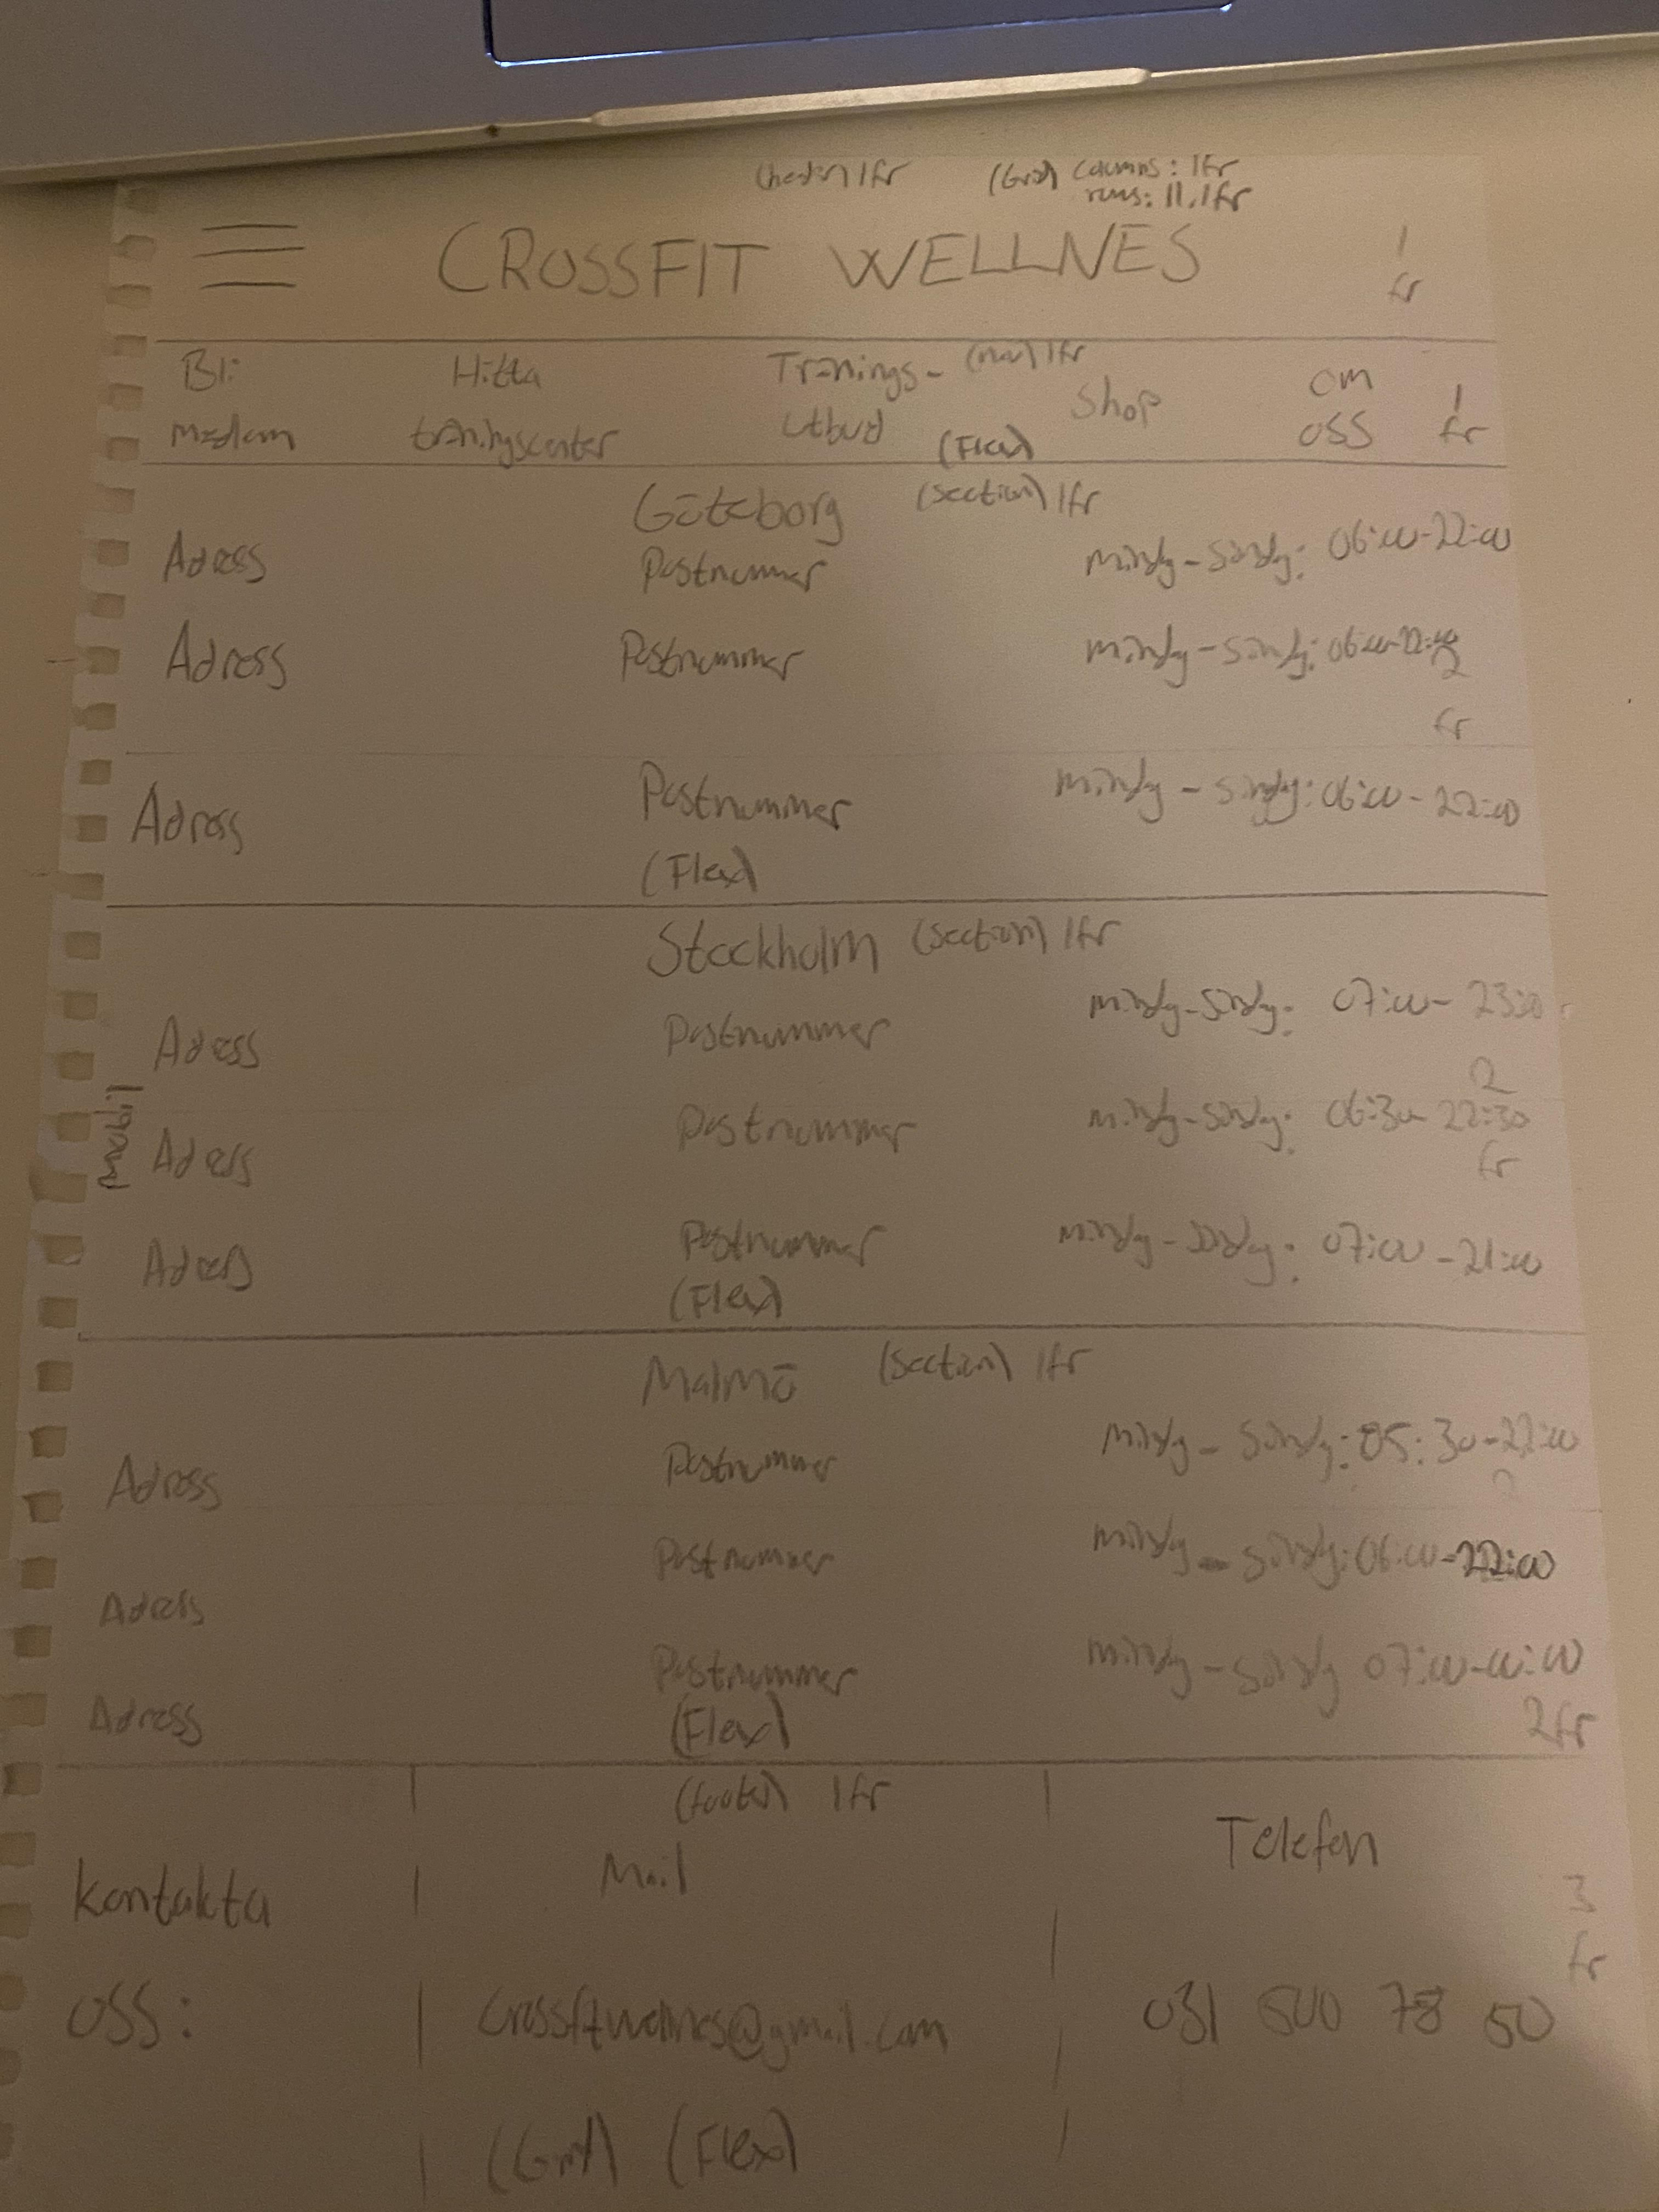 (header) 1fr (Grid) Columns: 1fr
rows: 11,1fr
CROSSFIT WELLNES 1
fr
Bli Hitta Tränings- (nav) 1fr Shop om 1
medlem träningscenter utbud (Flex) oss fr
Göteborg (section) 1fr
Adress Postnummer måndag-söndag: 06:00-22:00
Adress Postnummer måndag-söndag: 06:00-22:00
2
fr
Adress Postnummer måndag-söndag: 06:00-22:00
(Flex)
Stockholm (section) 1fr
Adress Postnummer måndag-söndag: 07:00-23:00
2
mobil
Adress Postnummer måndag-söndag: 06:30-22:30
fr
Adress Postnummer måndag-söndag: 07:00-21:00
(Flex)
Malmö (section) 1fr
Adress Postnummer måndag-söndag: 05:30-22:00
Adress Postnummer måndag-söndag: 06:00-22:00
Adress Postnummer måndag-söndag 07:00-
(Flex) 2fr
(footer) 1fr
Kontakta Mail Telefon 3
fr
oss: crossfitwellnes@gmail.com 031 500 78 50
(Grid) (Flex)